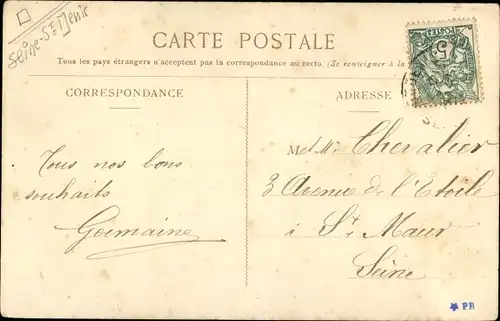 Seine-St Denis
CARTE POSTALE
Tous les pays étrangers n'acceptent pas la correspondance au recto (Se renseigner à la
CORRESPONDANCE
ADRESSE
Tous nos bons
souhaits
Germaine
M et Me Chevalier
3 Avenue de l'Etoile
à St Maur
Seine
5
PB